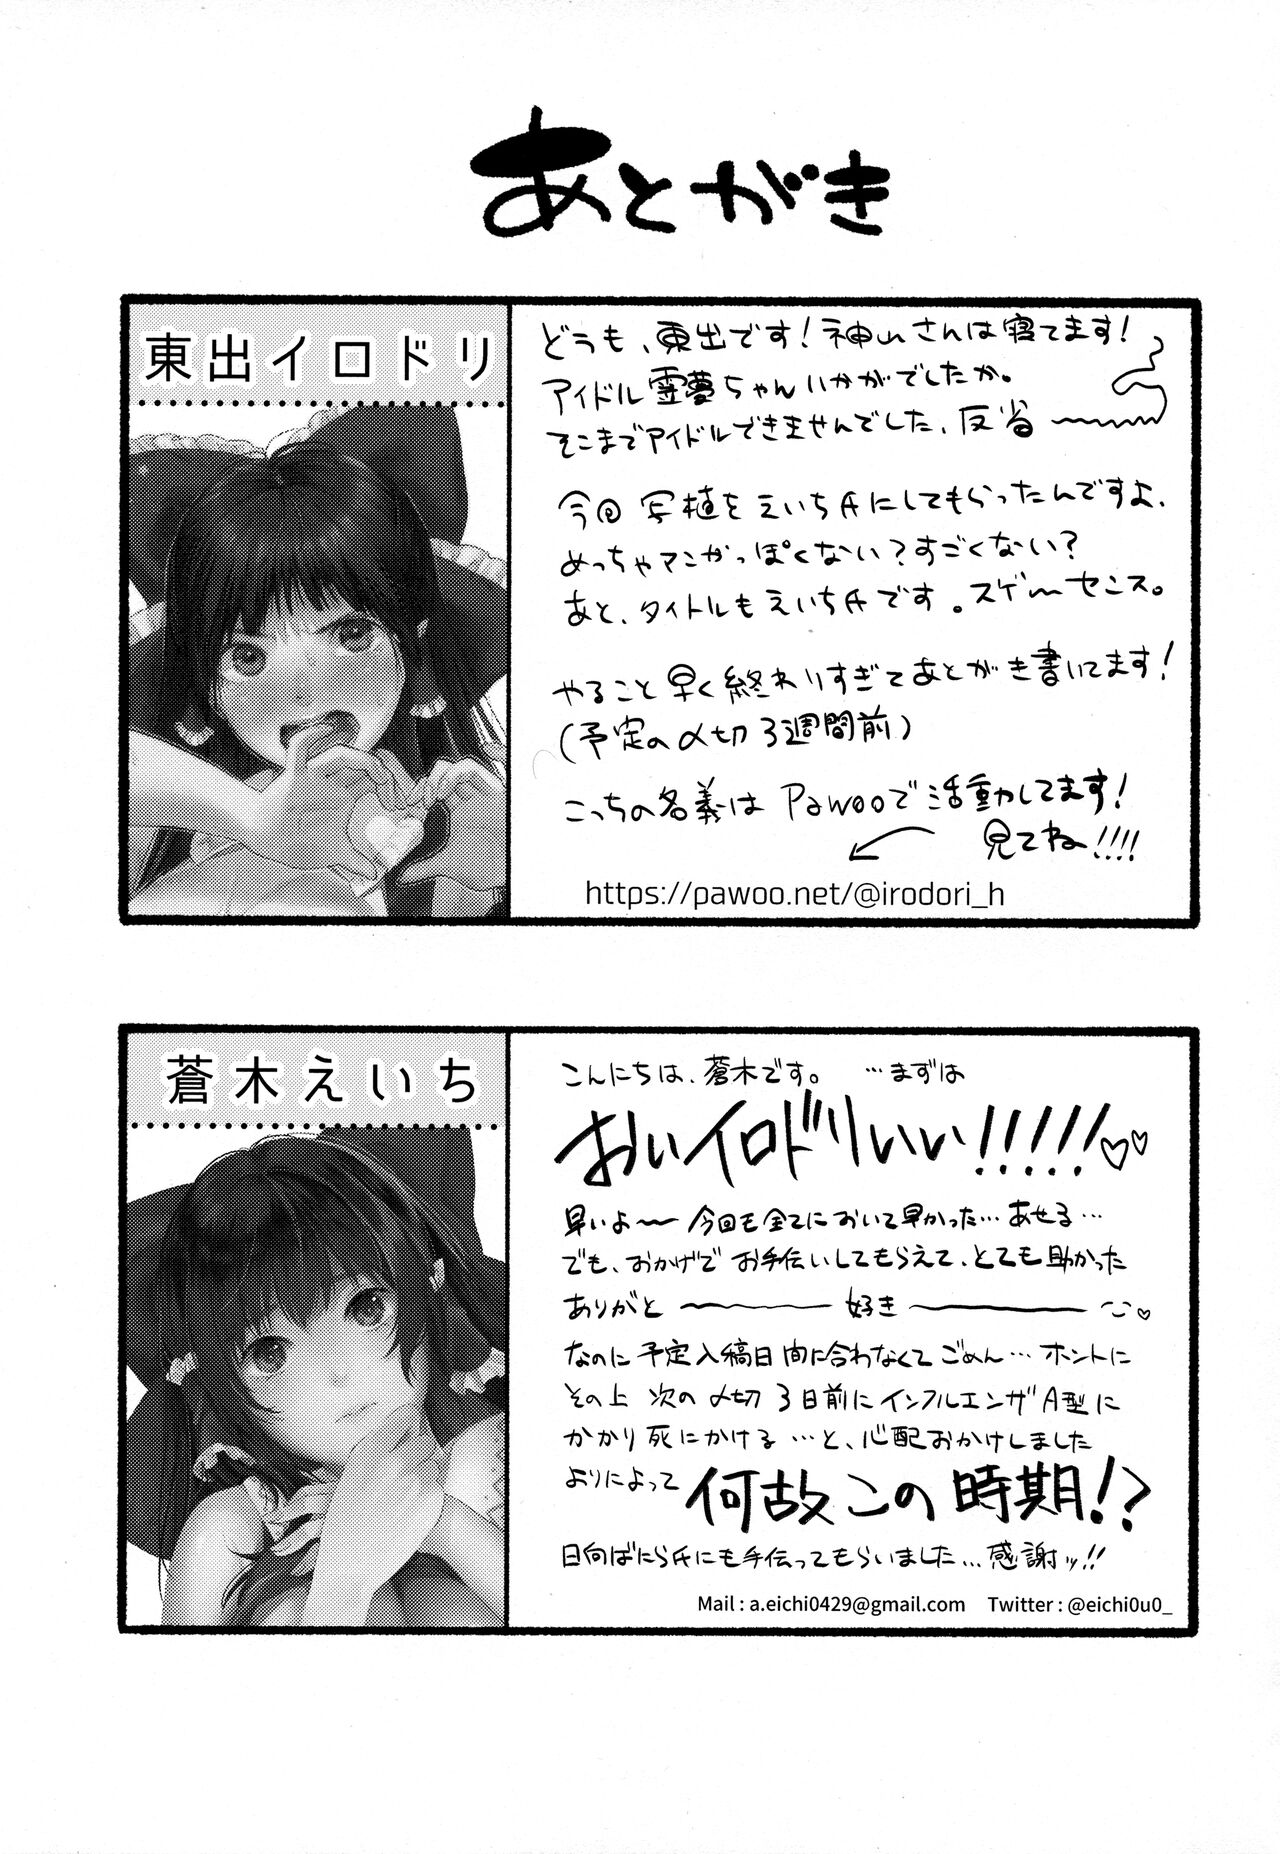 あとがき
東出イロドリ
どうも、東出です！神山さんは寝てます！
アイドル霊夢ちゃんいかがでしたか。
そこまでアイドルできませんでした、反省
今回写植をえいち氏にしてもらったんですよ、
めっちゃマンガっぽくない？すごくない？
あと、タイトルもえいち氏です。スゲーセンス。
やること早く終わりすぎてあとがき書いてます！
(予定の〆切3週間前)
こっちの名義はPawooで活動してます！
見てね!!!!
https://pawoo.net/@irodori_h
蒼木えいち
こんにちは、蒼木です。 …まずは
おいイロドリいい!!!!!♡♡
早いよ〜今回も全てにおいて早かった…あせる…
でも、おかげでお手伝いしてもらえて、とても助かった
ありがと〜好き〜♡
なのに予定入稿日間に合わなくてごめん…ホントに
その上 次の〆切3日前にインフルエンザA型に
かかり死にかける…と、心配おかけしました
よりによって 何故この時期!?
日向ばにら氏にも手伝ってもらいました…感謝ッ!!
Mail : a.eichi0429@gmail.com Twitter : @eichi0u0_